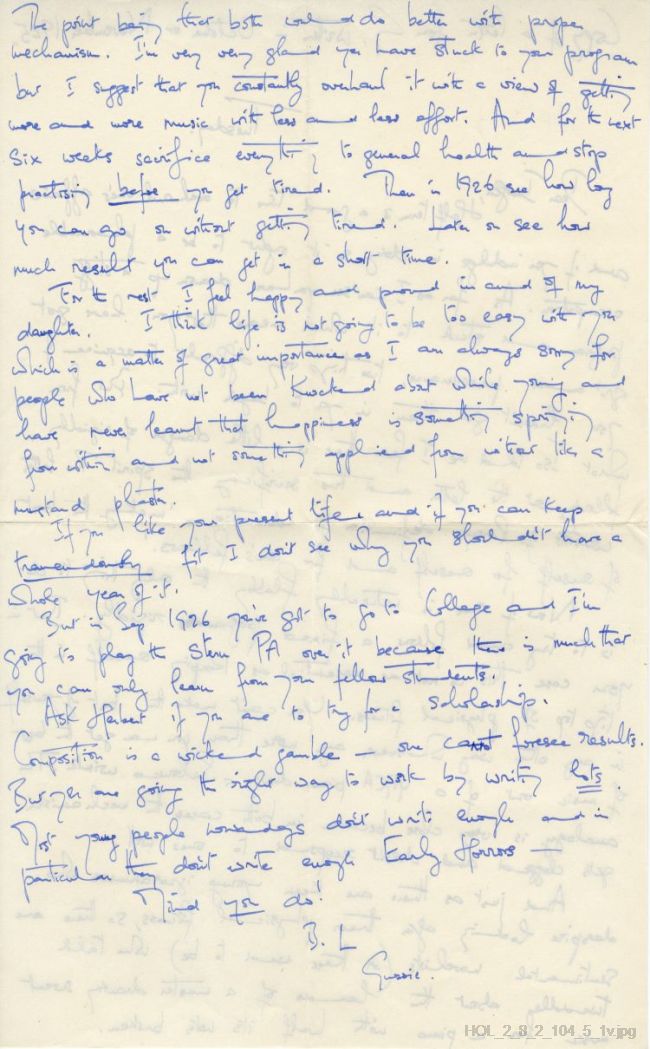 The point being that both could do better with proper
mechanism. I'm very very glad you have stuck to your program
but I suggest that you constantly overhaul it with a view of getting
more and more music with less and less effort. And for the next
six weeks sacrifice everything to general health and stop
practising before you get tired. Then in 1926 see how long
you can go on without getting tired. Later on see how
much result you can get in a short time.
For the rest I feel happy and proud in and of my
daughter. I think life is not going to be too easy with you
which is a matter of great importance as I am always sorry for
people who have not been knocked about while young and
have never learnt that happiness is something springing
from within and not something applied from without like a
mustard plaster.
If you like your present life and if you can keep
tremendously fit I don't see why you shouldn't have a
whole year of it.
But in Sep 1926 you've got to go to College and I'm
going to play the Stern PA over it because there is much that
you can only learn from your fellow students.
Ask Herbert if you are to try for a scholarship.
Composition is a wicked gamble — one cannot foresee results.
But you are going the right way to work by writing lots.
Most young people nowadays don't write enough and in
particular they don't write enough Early Horrors —
Mind you do!
B. L
Gussie.
HOL_2_8_2_104_5_1v.jpg